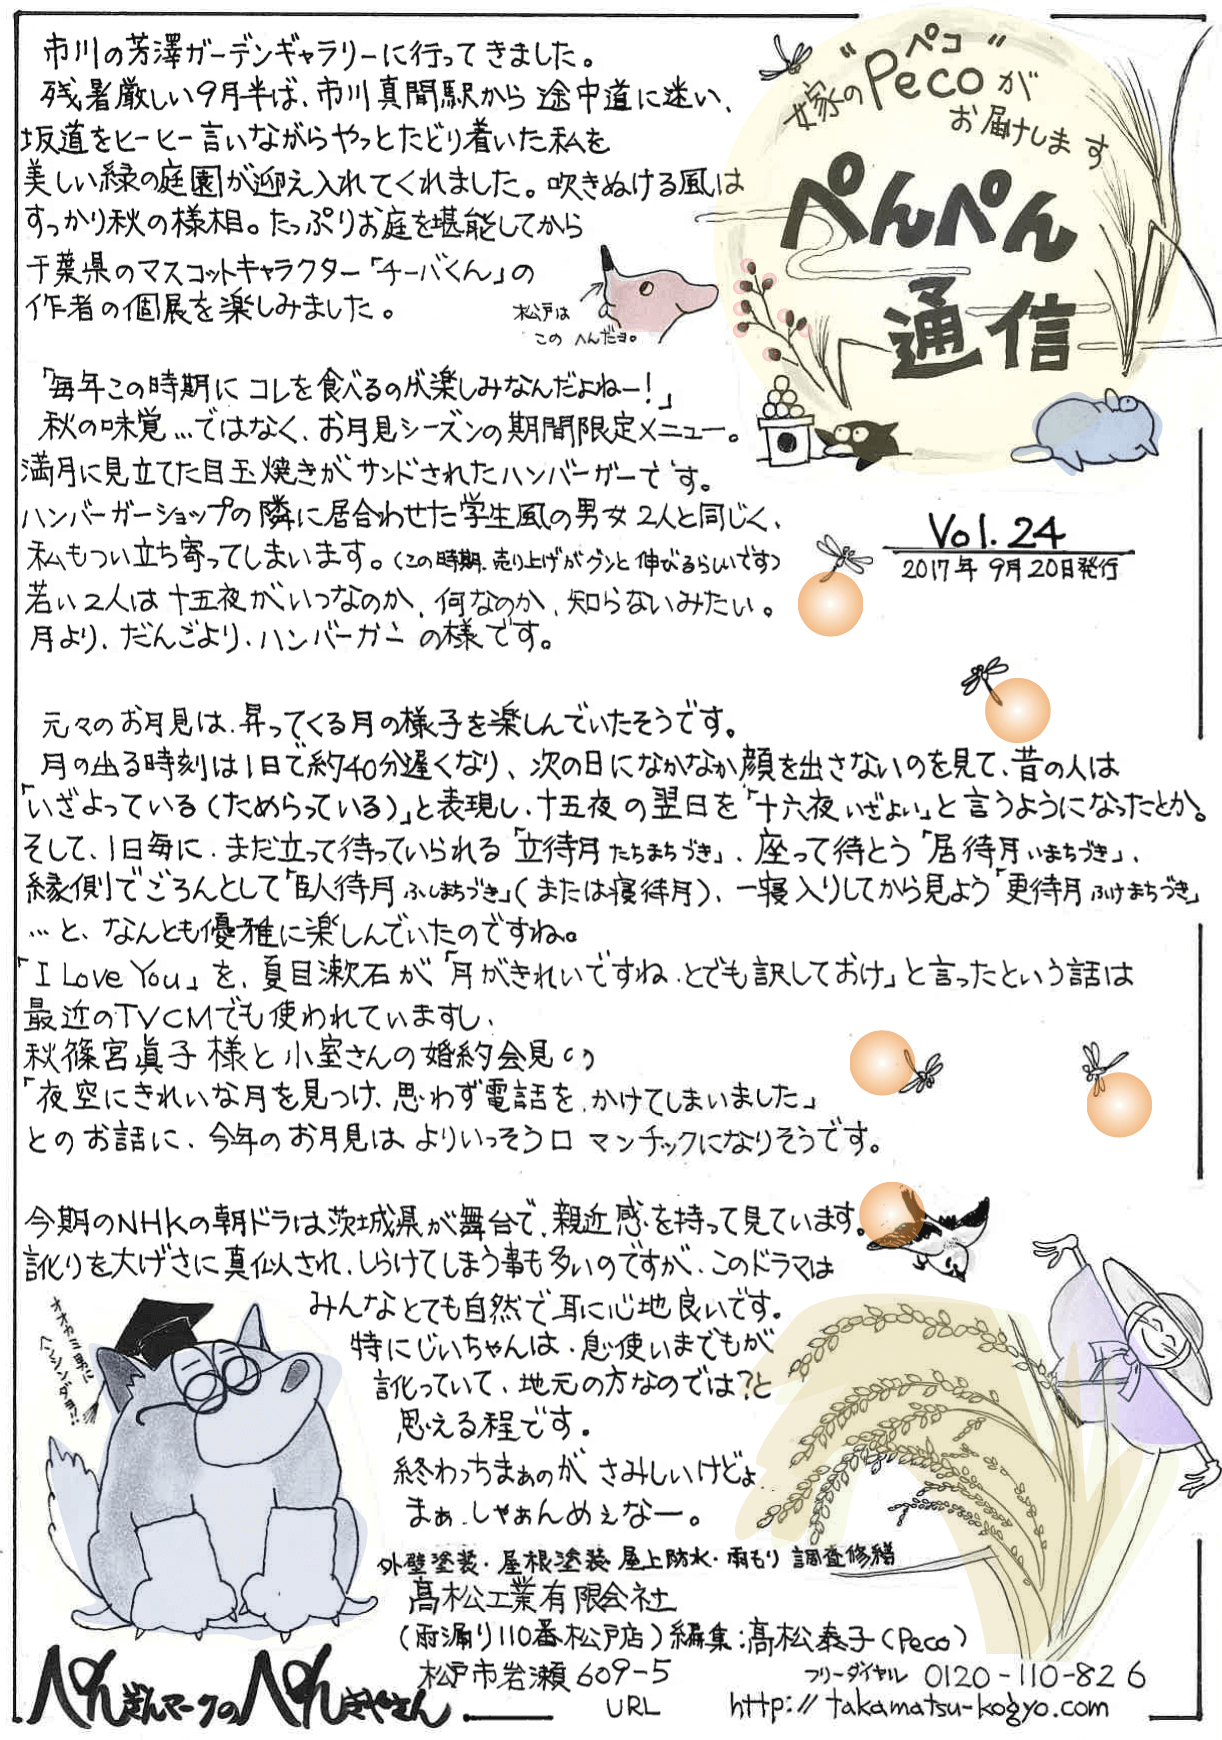 市川の芳澤ガーデンギャラリーに行ってきました。
残暑厳しい9月半ば、市川真間駅から途中道に迷い、
坂道をヒーヒー言いながらやっとたどり着いた私を
美しい緑の庭園が迎え入れてくれました。吹きぬける風は
すっかり秋の様相。たっぷりお庭を堪能してから
千葉県のマスコットキャラクター「チーバくん」の
作者の個展を楽しみました。
松戸は
この へんだヨ。
嫁の"Peco"が
ペコ
お届けします
ぺんぺん
通信
Vol.24
2017年9月20日発行
「毎年この時期にコレを食べるのが楽しみなんだよねー!」
秋の味覚…ではなく、お月見シーズンの期間限定メニュー。
満月に見立てた目玉焼きがサンドされたハンバーガーです。
ハンバーガーショップの隣に居合わせた学生風の男女2人と同じく、
私もつい立ち寄ってしまいます。(この時期、売り上げがグンと伸びるらしいです)
若い2人は十五夜がいつなのか、何なのか、知らないみたい。
月より、だんごより、ハンバーガーの様です。
元々のお月見は、昇ってくる月の様子を楽しんでいたそうです。
月の出る時刻は1日で約40分遅くなり、次の日になかなか顔を出さないのを見て、昔の人は
「いざよっている(ためらっている)」と表現し、十五夜の翌日を「十六夜いざよい」と言うようになったとか。
そして、1日毎に、まだ立って待っていられる「立待月たちまちづき」、座って待とう「居待月いまちづき」、
縁側でごろんとして「臥待月ふしまちづき」(または寝待月)、一寝入りしてから見よう「更待月ふけまちづき」
…と、なんとも優雅に楽しんでいたのですね。
「I Love You」を、夏目漱石が「月がきれいですね、とでも訳しておけ」と言ったという話は
最近のTVCMでも使われていますし、
秋篠宮眞子様と小室さんの婚約会見の
「夜空にきれいな月を見つけ、思わず電話を、かけてしまいました」
とのお話に、今年のお月見はよりいっそうロマンチックになりそうです。
今期のNHKの朝ドラは茨城県が舞台で、親近感を持って見ています。
訛りを大げさに真似され、しらけてしまう事も多いのですが、このドラマは
みんなとても自然で耳に心地良いです。
特にじいちゃんは、息使いまでもが
訛っていて、地元の方なのでは?と
思える程です。
終わっちまぁのが さみしいけどよ
まぁ、しゃぁんめぇなー。
オオカミ男に
ヘンシンダヨ!!
外壁塗装・屋根塗装・屋上防水・雨もり調査修繕
髙松工業有限会社
(雨漏り110番松戸店)編集:髙松泰子(Peco)
松戸市岩瀬609-5
フリーダイヤル 0120-110-826
URL http://takamatsu-kogyo.com
ぺんぎんマークのぺんきやさん